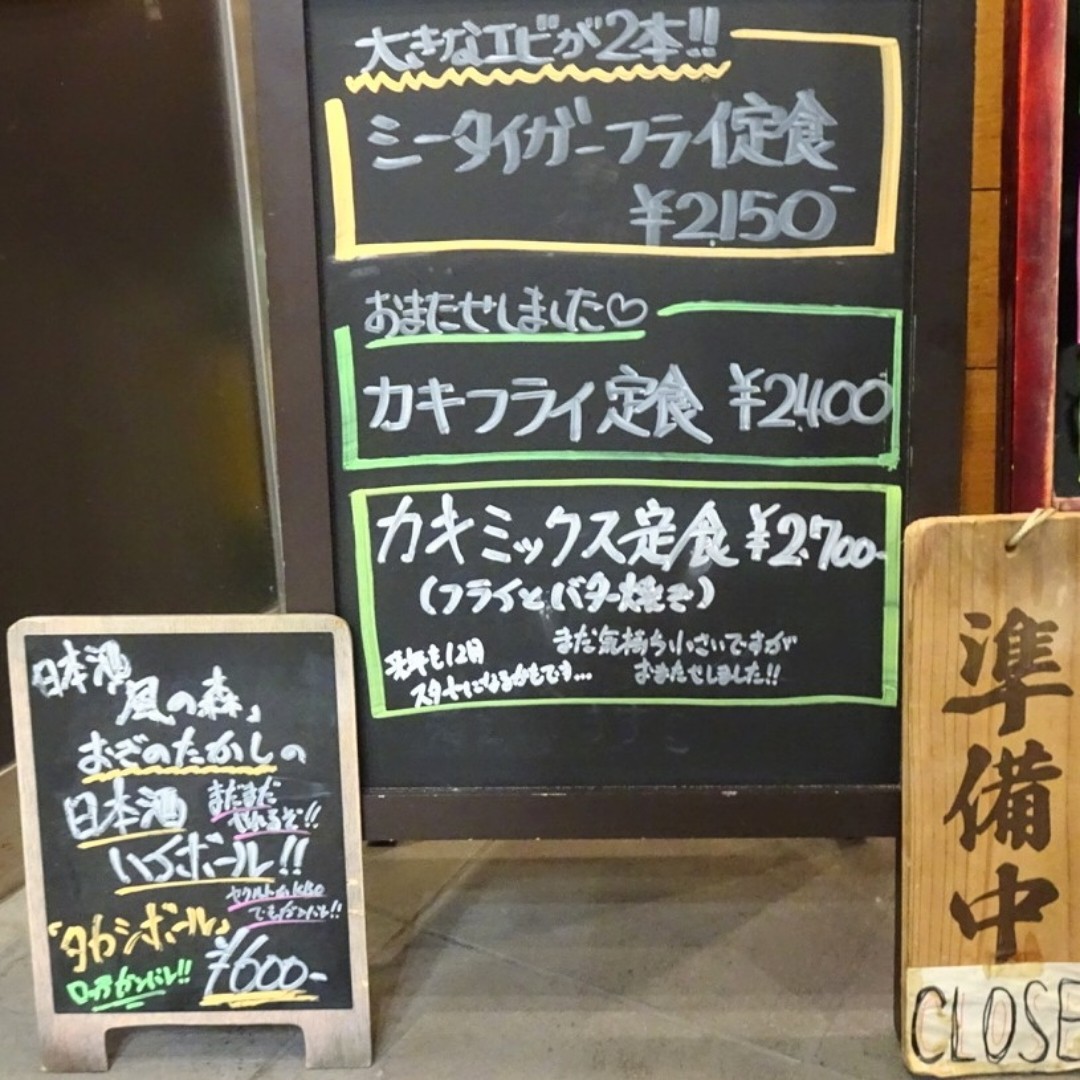 大きなエビが2本!!
ミータイガーフライ定食
¥2,150-
おまたせしました♡
カキフライ定食 ¥2,400
カキミックス定食 ¥2,700-
(フライとバター焼き)
まだ気持ち小さいですが
おまたせしました!!
来年も12月
スタートになるかもです...
日本酒
風の森」
おぞのたかしの
日本酒 まだまだ
やれるぞ!!
ハイボール!!
ヤクルトからKBO
でもガンバレ!!
「タカシボール」
ロッテガンバレ!! ¥600-
準備中
CLOSE